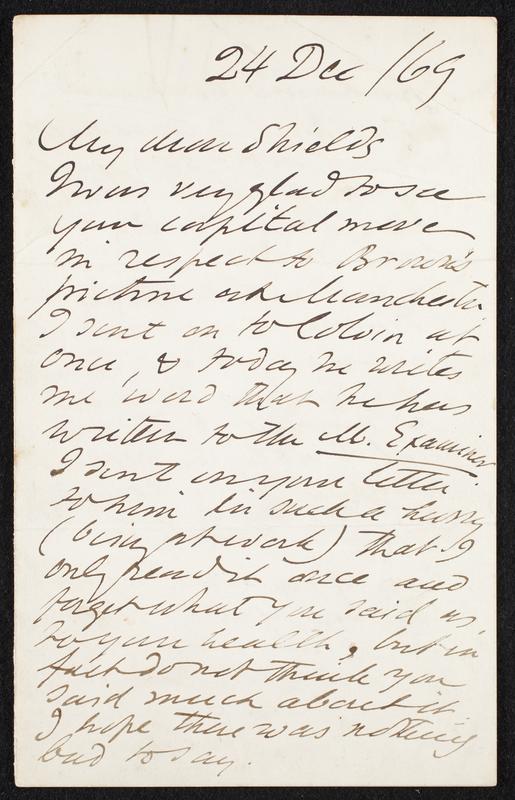 24 Dec /69
My dear Shields
I was very glad to see
your capital move
in respect to Brown's
picture at Manchester.
I sent on to Colvin at
once, & today he writes
me word that he has
written to the M. Examiner
I sent on your letter
to him in such a hurry
(being at work) that I
only read it once and
forget what you said as
to your health, but in
fact do not think you
said much about it.
I hope there was nothing
bad to say.